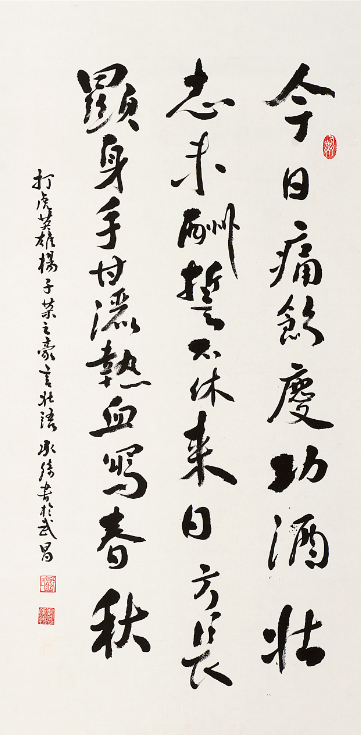 今日痛飲慶功酒壯
志未酬誓不休来日方长
顯身手甘灑熱血写春秋
打虎英雄楊子荣之豪言壮語 承德書於武昌